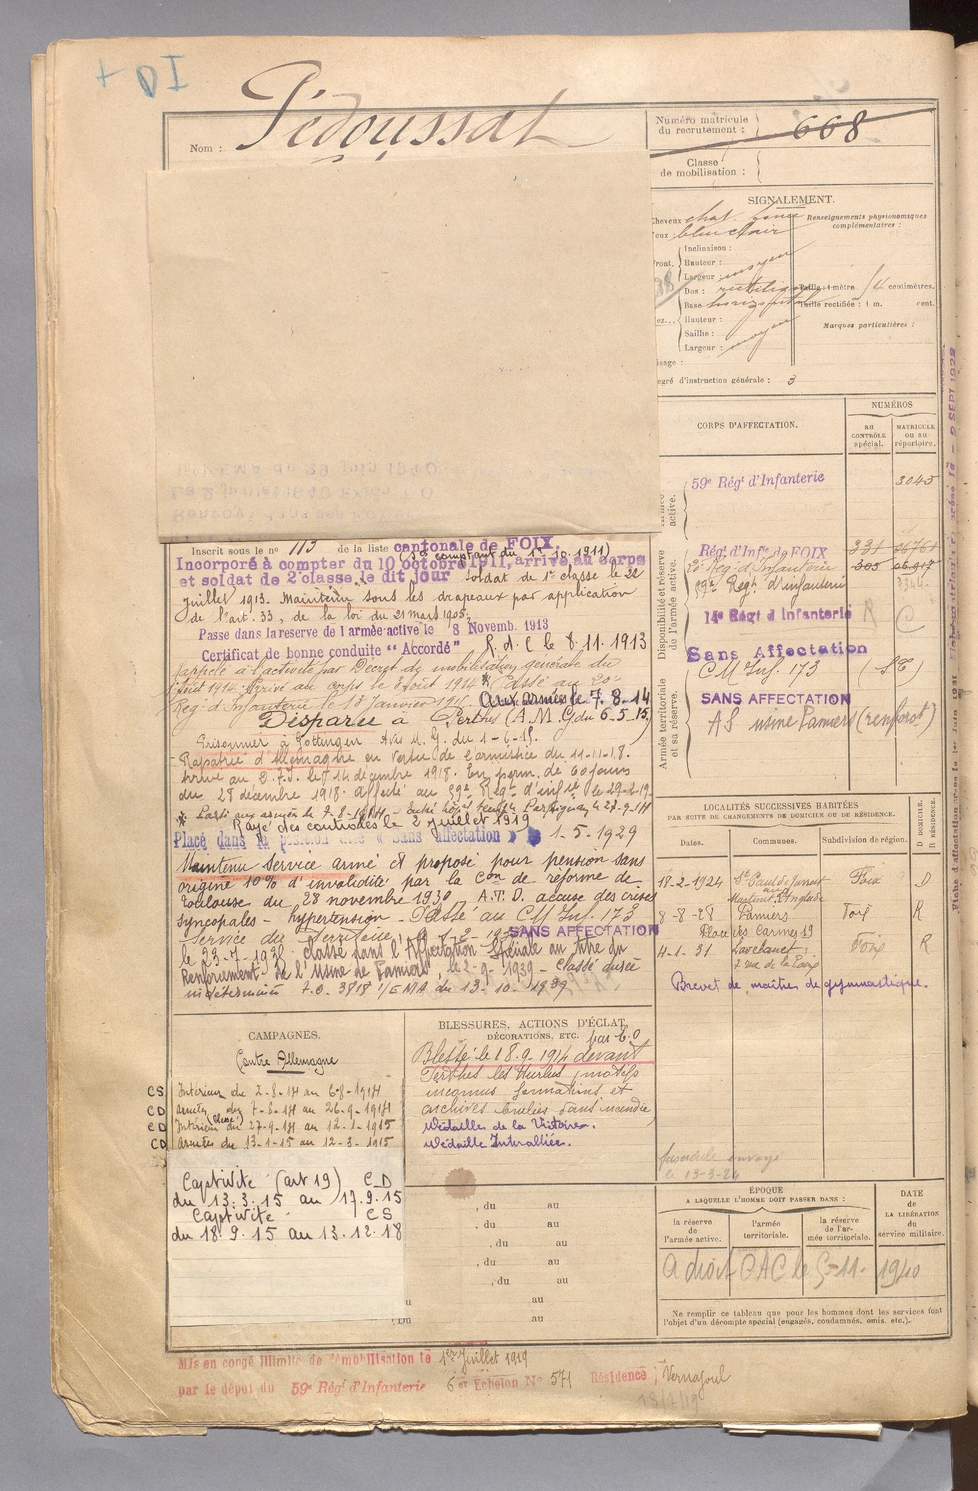 + DI
Nom : Pédoussat
Numéro matricule
du recrutement : 668
Classe
de mobilisation :
SIGNALEMENT.
Cheveux chat. foncé
Yeux bleu clair
Renseignements physionomiques
complémentaires :
Inclinaison :
Front. Hauteur :
Largeur : moyen
Dos : rectiligne
Base horizontale
Hauteur :
Saillie :
Largeur : moyen
Taille : 1 mètre centimètres.
Taille rectifiée : 1 m. cent.
Marques particulières :
isage :
egré d'instruction générale : 3
CORPS D'AFFECTATION.
NUMÉROS
AU
CONTRÔLE
spécial.
MATRICULE
ou au
répertoire.
active.
59e Régt d'Infanterie 3045
Disponibilité et réserve
de l'armée active.
Régt d'Infie de FOIX 331
Rég. d'Infanterie 305
59e Regt d'infanterie
14e Régt d'Infanterie R C
Sans Affectation
Armée territoriale
et sa réserve.
CM Inf. 173
SANS AFFECTATION
AS usine Pamiers (renforct)
Inscrit sous le n° 113 de la liste cantonale de FOIX
(à comptant du 1er 10.1911)
Incorporé à compter du 10 octobre 1911, arrivé au corps
et soldat de 2e classe le dit jour soldat de 1e classe le 22
juillet 1913. Maintenu sous les drapeaux par application
de l'art. 33, de la loi du 21 mars 1905.
Passe dans la reserve de l'armée active le 8 Novemb. 1913
Certificat de bonne conduite "Accordé" R.d.C le 8.11.1913
Rappelé à l'activité par Décret de mobilisation générale du
1 Août 1914. Arrivé au corps le 3 août 1914 * Passé au 20e
Reg. d'Infanterie le 13 Janvier 1915. Aux armées le 7.8.14
Disparu à Perthes (A.M.G. du 6.5.15)
Prisonnier à Gottingen Avis M.G. du 1-6-15.
Rapatrié d'Allemagne en vertu de l'armistice du 11-11-18.
Arrivé au le 14 décembre 1918. En perm. de 60 jours
du 28 décembre 1918. affecté au 59e Regt d'infie le 29-2-19
* Parti aux armées le 7-8-1914 - Entré hôpal tempre Perpignan le 27-9-14
Rayé des controles le 2 juillet 1919
Placé dans la position dite « Sans affectation » 1-5-1929
Maintenu Service armé et proposé pour pension sans
origine 10% d'invalidité par la Con de réforme de
Toulouse du 28 novembre 1930. A.T.D. accuse des crises
syncopales - hypertension. Passé au CM Inf. 173
SANS AFFECTATION
le 23-7-1938 classé dans l'Affectation Spéciale au titre du
Renforcement de l'usine de Pamiers, le 2-9-1939 - Classé durée
indéterminée T.O. 3818 1/EMA du 13-10-1939
LOCALITÉS SUCCESSIVES HABITÉES
PAR SUITE DE CHANGEMENTS DE DOMICILE OU DE RÉSIDENCE.
Dates. Communes. Subdivision de région. D DOMICILE. R RÉSIDENCE.
18-2-1924 St Paul de Jarrat Foix D
8-8-28 Pamiers Foix R
Place des Carmes 19
4-1-31 Lavelanet : Foix R
7 rue de la Paix
Brevet de maître de gymnastique.
fascicule envoyé
le 13-3-24
CAMPAGNES.
Contre Allemagne
CS Intérieur du 2-8-14 au 6-8-1914
CD armées du 7-8-14 au 26-9-1914
CD Intérieur (blessé) du 27-9-14 au 12-1-1915
CD armées du 13-1-15 au 12-3-1915
Captivité (art 19) CD
du 13.3.15 au 17.9.15
Captivité CS
du 18.9.15 au 13.12.18
BLESSURES, ACTIONS D'ÉCLAT,
DÉCORATIONS, ETC.
Blessé le 18-9-1914 devant
Perthes les Hurlus, motifs
inconnus formations et
archives brulées dans incendie
Médaille de la Victoire.
Médaille Interalliée.
, du au
, du au
, du au
, du au
, du au
u au
, Du au
ÉPOQUE
A LAQUELLE L'HOMME DOIT PASSER DANS :
la réserve
de l'armée active.
l'armée
territoriale.
la réserve
de l'ar-
mée territoriale.
DATE
de
LA LIBÉRATION
du
service militaire.
A droit CAC le 5-11-1940
Ne remplir ce tableau que pour les hommes dont les services font
l'objet d'un décompte spécial (engagés, condamnés, omis, etc.).
Mis en congé illimité de démobilisation le 1er Juillet 1919
par le dépôt du 59e Régt d'Infanterie 6e Echelon N° 571 Résidence : Vernajoul
18/7/19